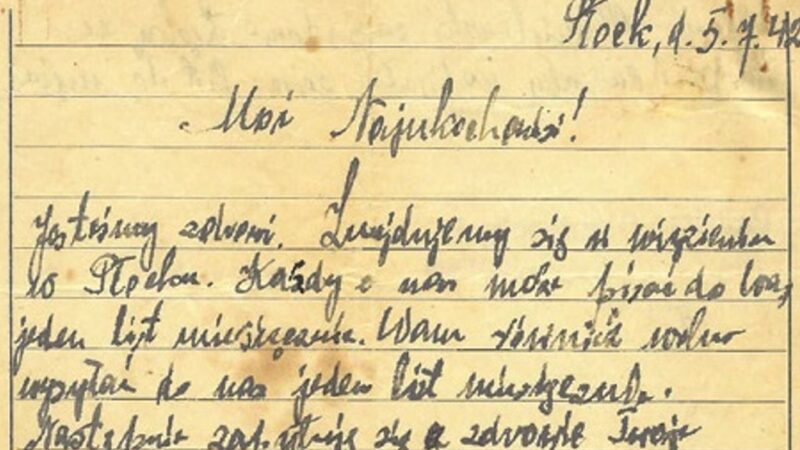 Płock, d. 5. 7. 42
Moi Najukochańsi!
Jesteśmy zdrowi. Znajdujemy się w więzieniu
w Płocku. Każdy z nas może pisać do Was
jeden list miesięcznie. Wam również wolno
wysyłać do nas jeden list miesięcznie.
Następnie zapytuję się o zdrowie Twoje